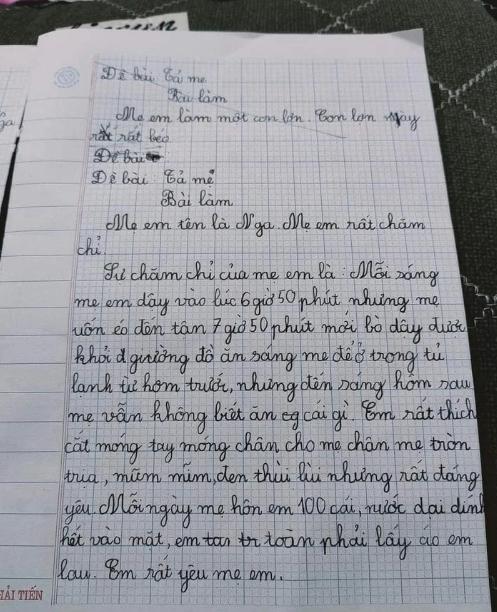 Đề bài Tả mẹ
Bài làm
Mẹ em làm một con lợn. Con lợn này
rất rất béo
Đề bài
Đề bài: Tả mẹ
Bài làm
Mẹ em tên là Nga. Mẹ em rất chăm
chỉ.
Sự chăm chỉ của mẹ em là: Mỗi sáng
mẹ em dậy vào lúc 6 giờ 50 phút nhưng mẹ
uốn éo đến tận 7 giờ 50 phút mới bò dậy được
khỏi giường đồ ăn sáng mẹ để ở trong tủ
lạnh từ hôm trước, nhưng đến sáng hôm sau
mẹ vẫn không biết ăn cái gì. Em rất thích
cắt móng tay móng chân cho mẹ chân mẹ tròn
trịa, mũm mĩm, đen thùi lùi nhưng rất đáng
yêu. Mỗi ngày mẹ hôn em 100 cái, nước dãi dính
hết vào mặt, em toàn phải lấy áo em
lau. Em rất yêu mẹ em.
HẢI TIẾN